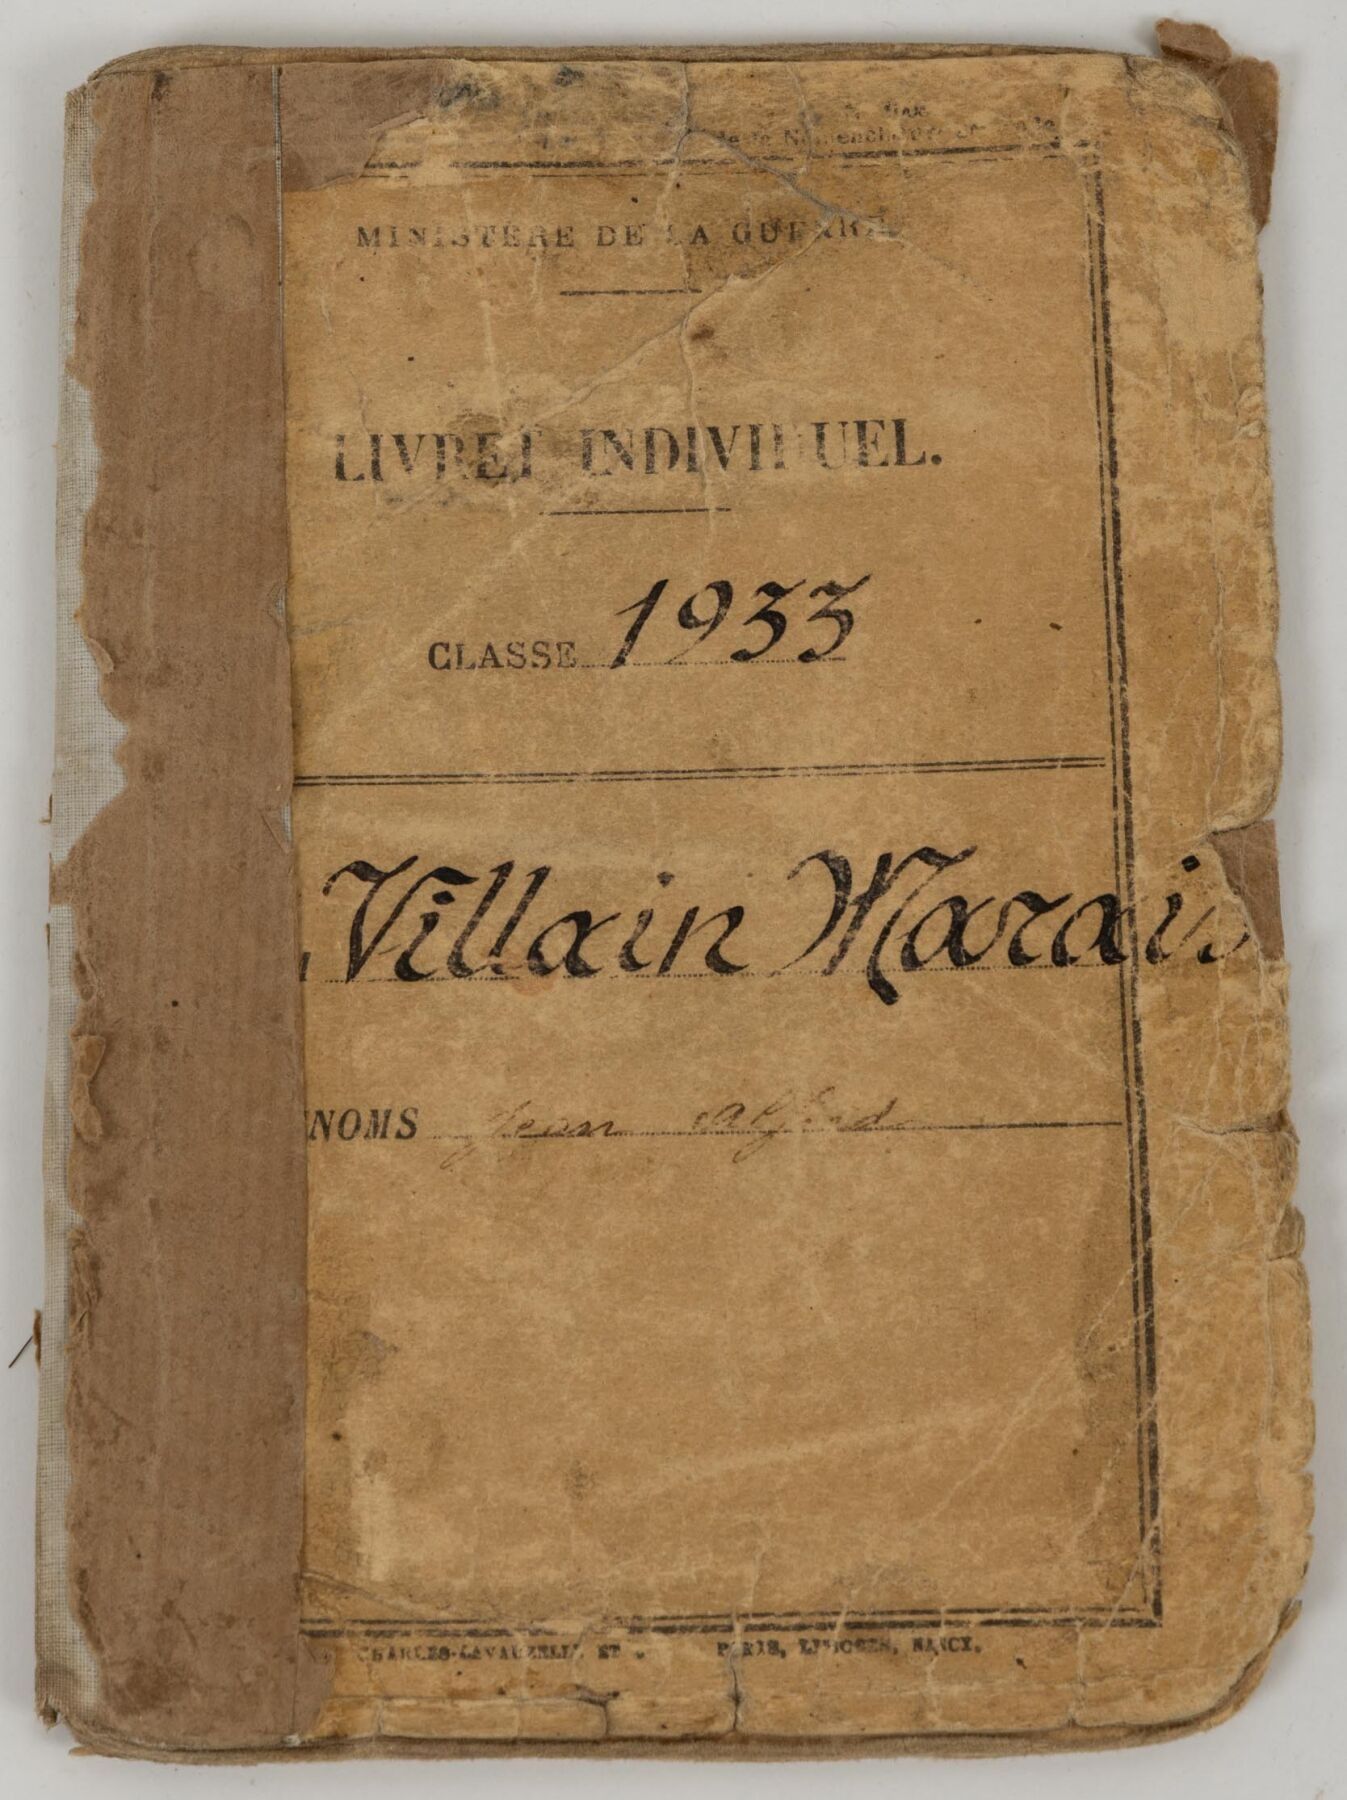 de la Nomenclature
MINISTERE DE LA GUERRE
LIVRET INDIVIDUEL.
CLASSE 1933
Villain Marais
NOMS Jean Alfred
CHARLES-LAVAUZELLE ET PARIS, LIMOGES, NANCY.